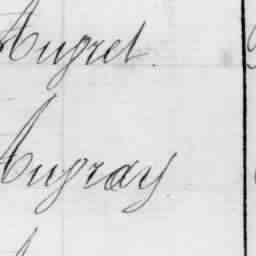 Augret.
Augray